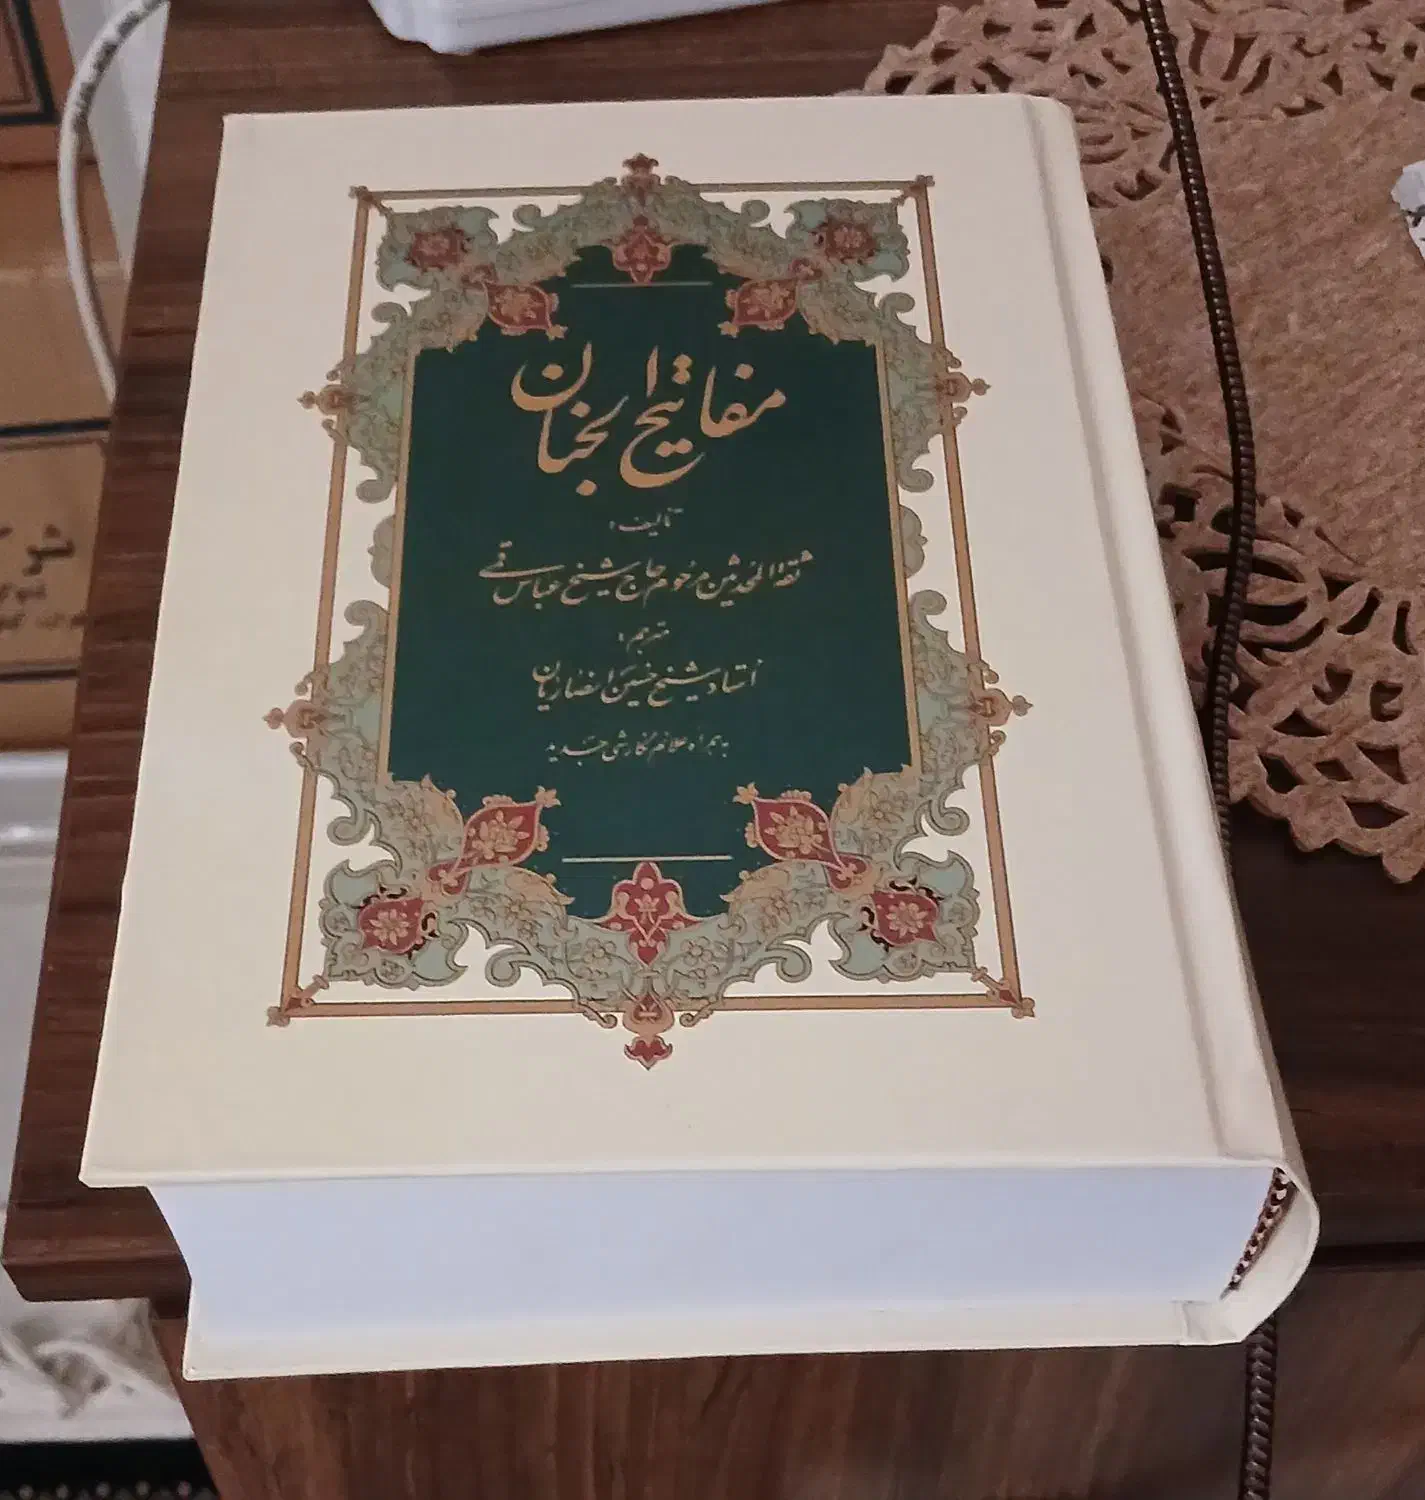 مفاتیح الجنان
تألیف:
ثقة المحدثین مرحوم حاج شیخ عباس قمی
مترجم:
استاد شیخ حسین انصاریان
به همراه علائم نگارشی جدید